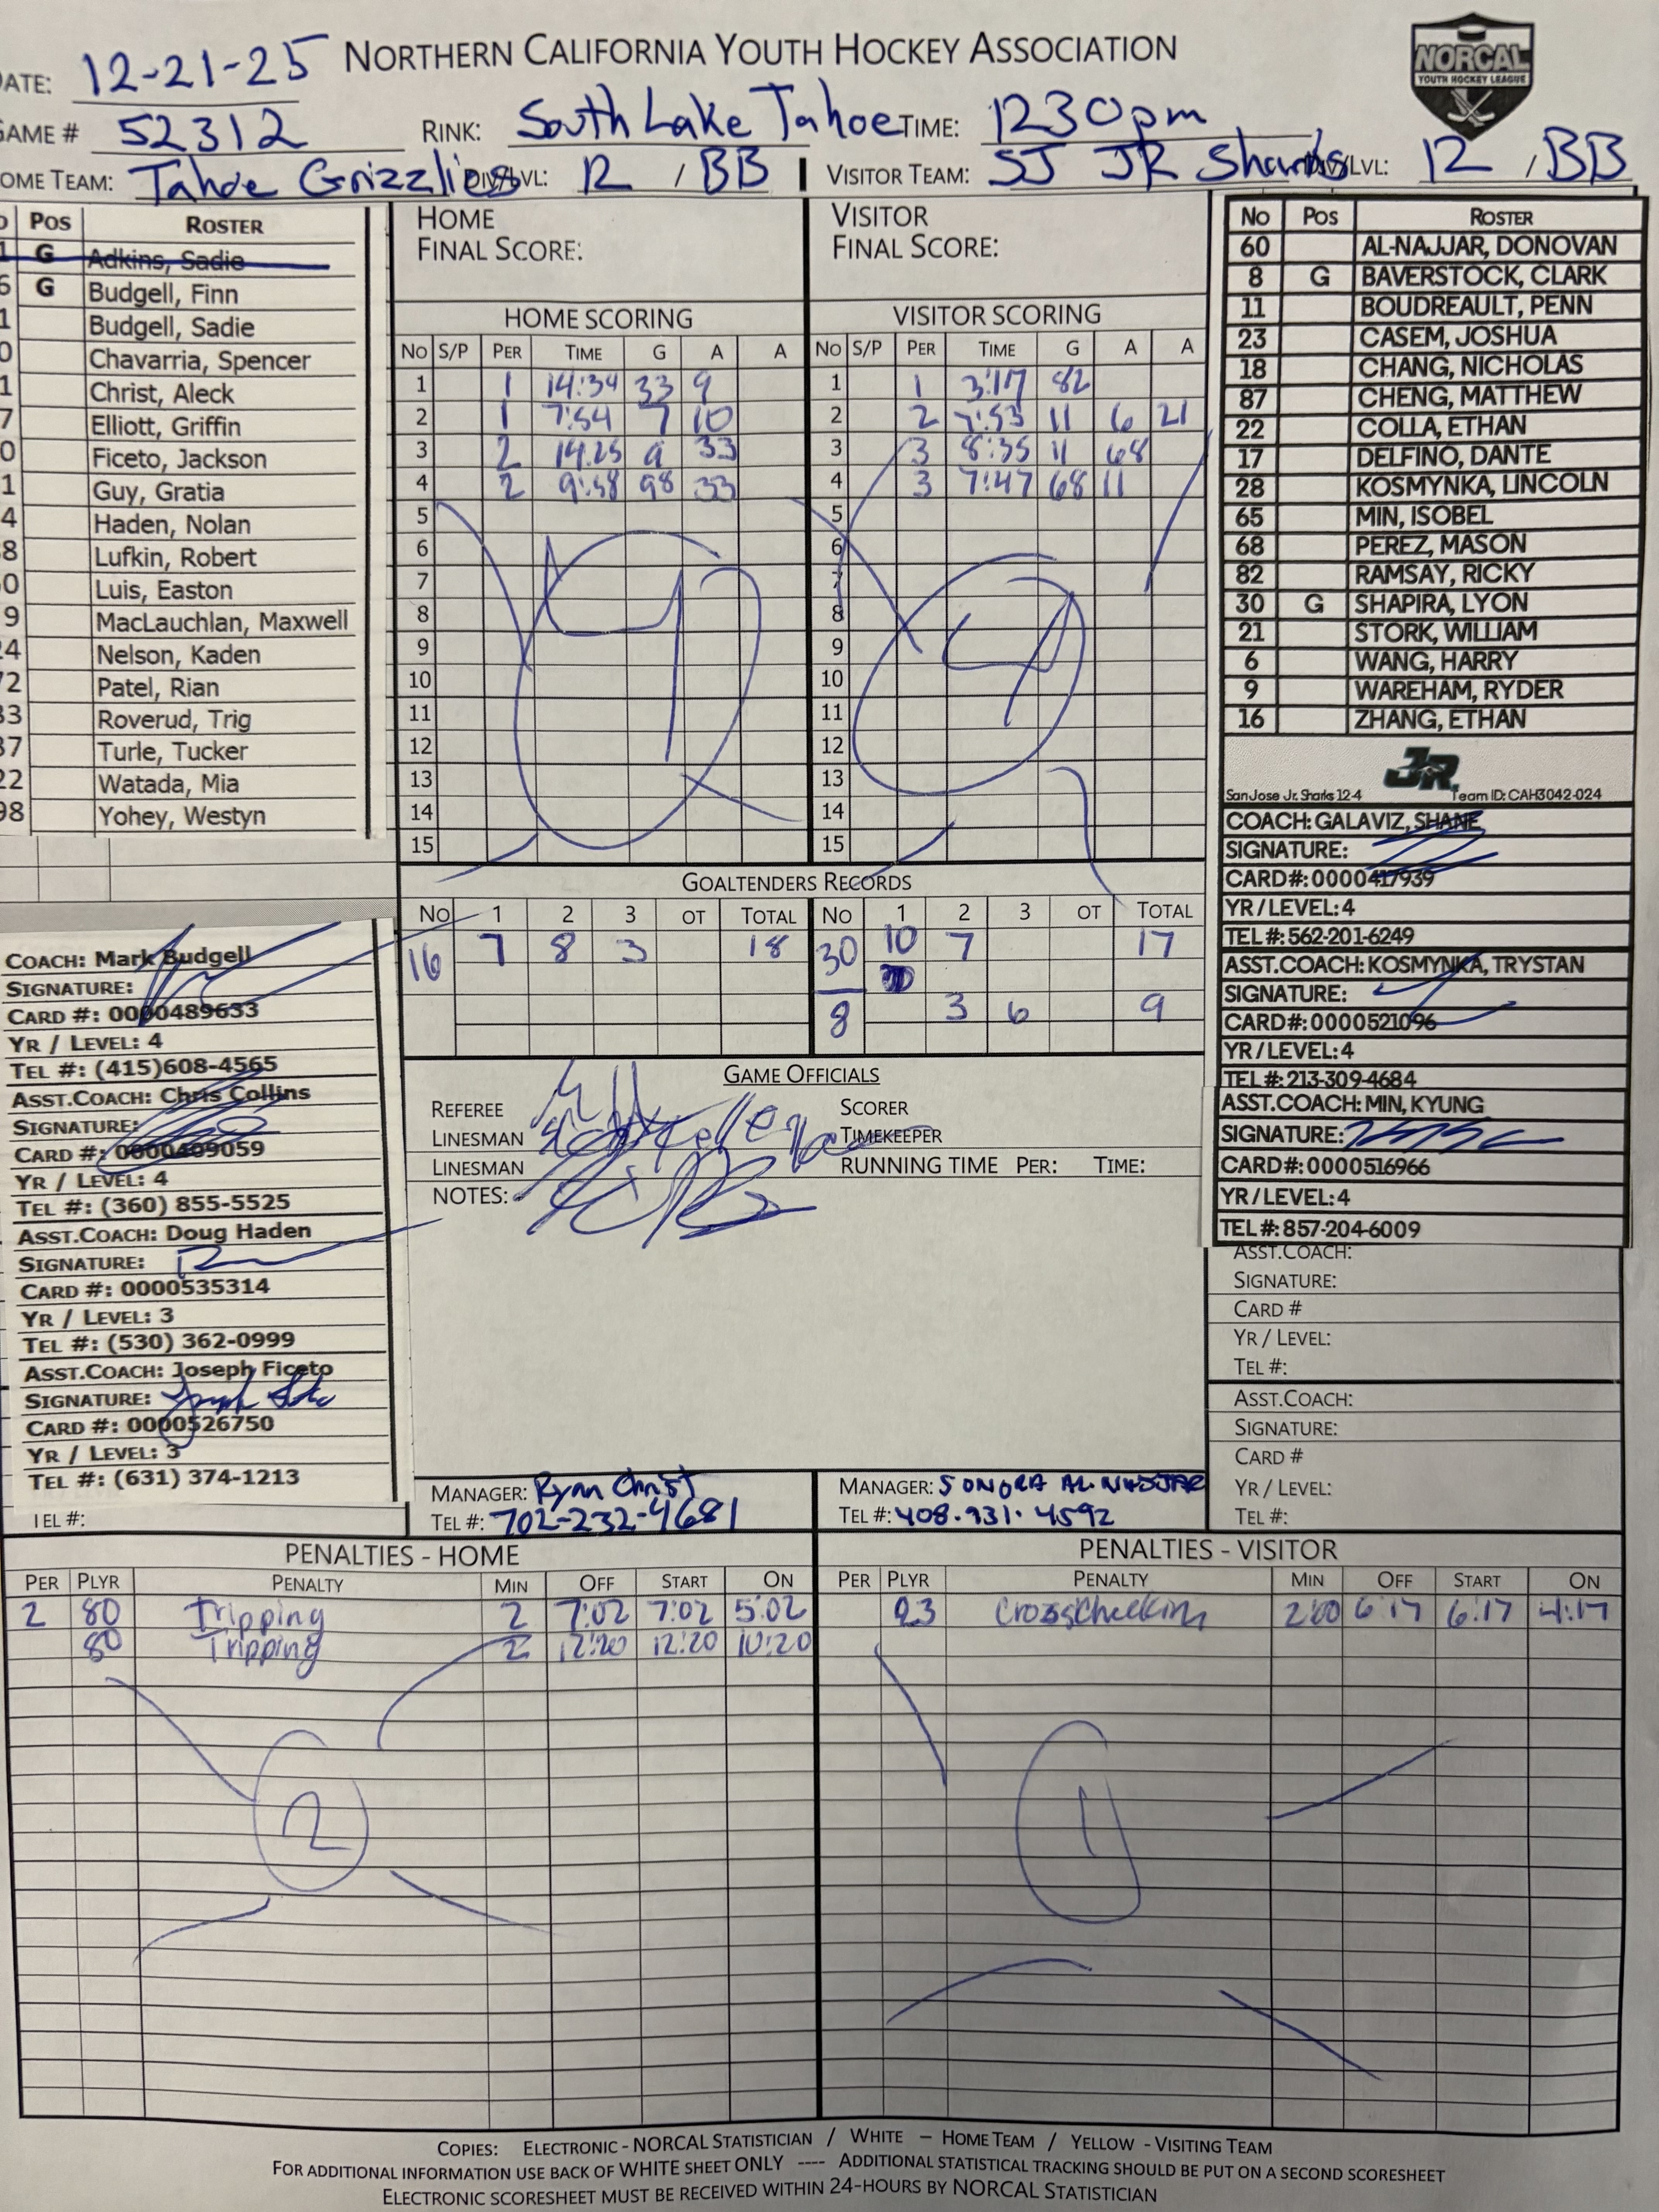 DATE: 12-21-25 NORTHERN CALIFORNIA YOUTH HOCKEY ASSOCIATION
NORCAL
YOUTH HOCKEY LEAGUE
GAME # 52312 RINK: South Lake Tahoe TIME: 1230pm
HOME TEAM: Tahoe Grizzlies DIV/LVL: 12 / BB VISITOR TEAM: SJ JR Sharks DIV/LVL: 12 / BB
POS ROSTER
G Adkins, Sadie
6 G Budgell, Finn
1 Budgell, Sadie
0 Chavarria, Spencer
1 Christ, Aleck
7 Elliott, Griffin
0 Ficeto, Jackson
1 Guy, Gratia
4 Haden, Nolan
8 Lufkin, Robert
0 Luis, Easton
9 MacLauchlan, Maxwell
24 Nelson, Kaden
72 Patel, Rian
33 Roverud, Trig
37 Turle, Tucker
22 Watada, Mia
98 Yohey, Westyn
HOME
FINAL SCORE:
VISITOR
FINAL SCORE:
HOME SCORING
NO S/P PER TIME G A A
1 1 14:34 33 9
2 1 7:54 7 10
3 2 14:25 9 33
4 2 9:58 98 33
5
6
7
8
9
10
11
12
13
14
15
4
VISITOR SCORING
NO S/P PER TIME G A A
1 1 3:17 82
2 2 7:53 11 6 21
3 3 8:35 11 68
4 3 7:47 68 11
5
6
7
8
9
10
11
12
13
14
15
4
NO POS ROSTER
60 AL-NAJJAR, DONOVAN
8 G BAVERSTOCK, CLARK
11 BOUDREAULT, PENN
23 CASEM, JOSHUA
18 CHANG, NICHOLAS
87 CHENG, MATTHEW
22 COLLA, ETHAN
17 DELFINO, DANTE
28 KOSMYNKA, LINCOLN
65 MIN, ISOBEL
68 PEREZ, MASON
82 RAMSAY, RICKY
30 G SHAPIRA, LYON
21 STORK, WILLIAM
6 WANG, HARRY
9 WAREHAM, RYDER
16 ZHANG, ETHAN
JR.
San Jose Jr. Sharks 12-4 Team ID: CAH3042-024
COACH: GALAVIZ, SHANE
SIGNATURE:
CARD#: 0000417939
YR / LEVEL: 4
TEL #: 562-201-6249
ASST.COACH: KOSMYNKA, TRYSTAN
SIGNATURE:
CARD#: 0000521096
YR / LEVEL: 4
TEL #: 213-309-4684
ASST.COACH: MIN, KYUNG
SIGNATURE:
CARD#: 0000516966
YR / LEVEL: 4
TEL #: 857-204-6009
ASST.COACH:
SIGNATURE:
CARD #
YR / LEVEL:
TEL #:
ASST.COACH:
SIGNATURE:
CARD #
YR / LEVEL:
TEL #:
GOALTENDERS RECORDS
NO 1 2 3 OT TOTAL NO 1 2 3 OT TOTAL
16 7 8 3 18 30 10 7 17
8 3 6 9
COACH: Mark Budgell
SIGNATURE:
CARD #: 0000489633
YR / LEVEL: 4
TEL #: (415)608-4565
ASST.COACH: Chris Collins
SIGNATURE:
CARD #: 0000409059
YR / LEVEL: 4
TEL #: (360) 855-5525
ASST.COACH: Doug Haden
SIGNATURE:
CARD #: 0000535314
YR / LEVEL: 3
TEL #: (530) 362-0999
ASST.COACH: Joseph Ficeto
SIGNATURE:
CARD #: 0000526750
YR / LEVEL: 3
TEL #: (631) 374-1213
TEL #:
GAME OFFICIALS
REFEREE SCORER
LINESMAN TIMEKEEPER
LINESMAN RUNNING TIME PER: TIME:
NOTES:
MANAGER: Ryan Christ
TEL #: 702-232-4681
MANAGER: SONORA AL-NAJJAR
TEL #: 408.931.4592
PENALTIES - HOME
PER PLYR PENALTY MIN OFF START ON
2 80 Tripping 2 7:02 7:02 5:02
80 Tripping 2 12:20 12:20 10:20
2
PENALTIES - VISITOR
PER PLYR PENALTY MIN OFF START ON
23 Crosschecking 2:00 6:17 6:17 4:17
1
COPIES: ELECTRONIC - NORCAL STATISTICIAN / WHITE – HOME TEAM / YELLOW - VISITING TEAM
FOR ADDITIONAL INFORMATION USE BACK OF WHITE SHEET ONLY ---- ADDITIONAL STATISTICAL TRACKING SHOULD BE PUT ON A SECOND SCORESHEET
ELECTRONIC SCORESHEET MUST BE RECEIVED WITHIN 24-HOURS BY NORCAL STATISTICIAN